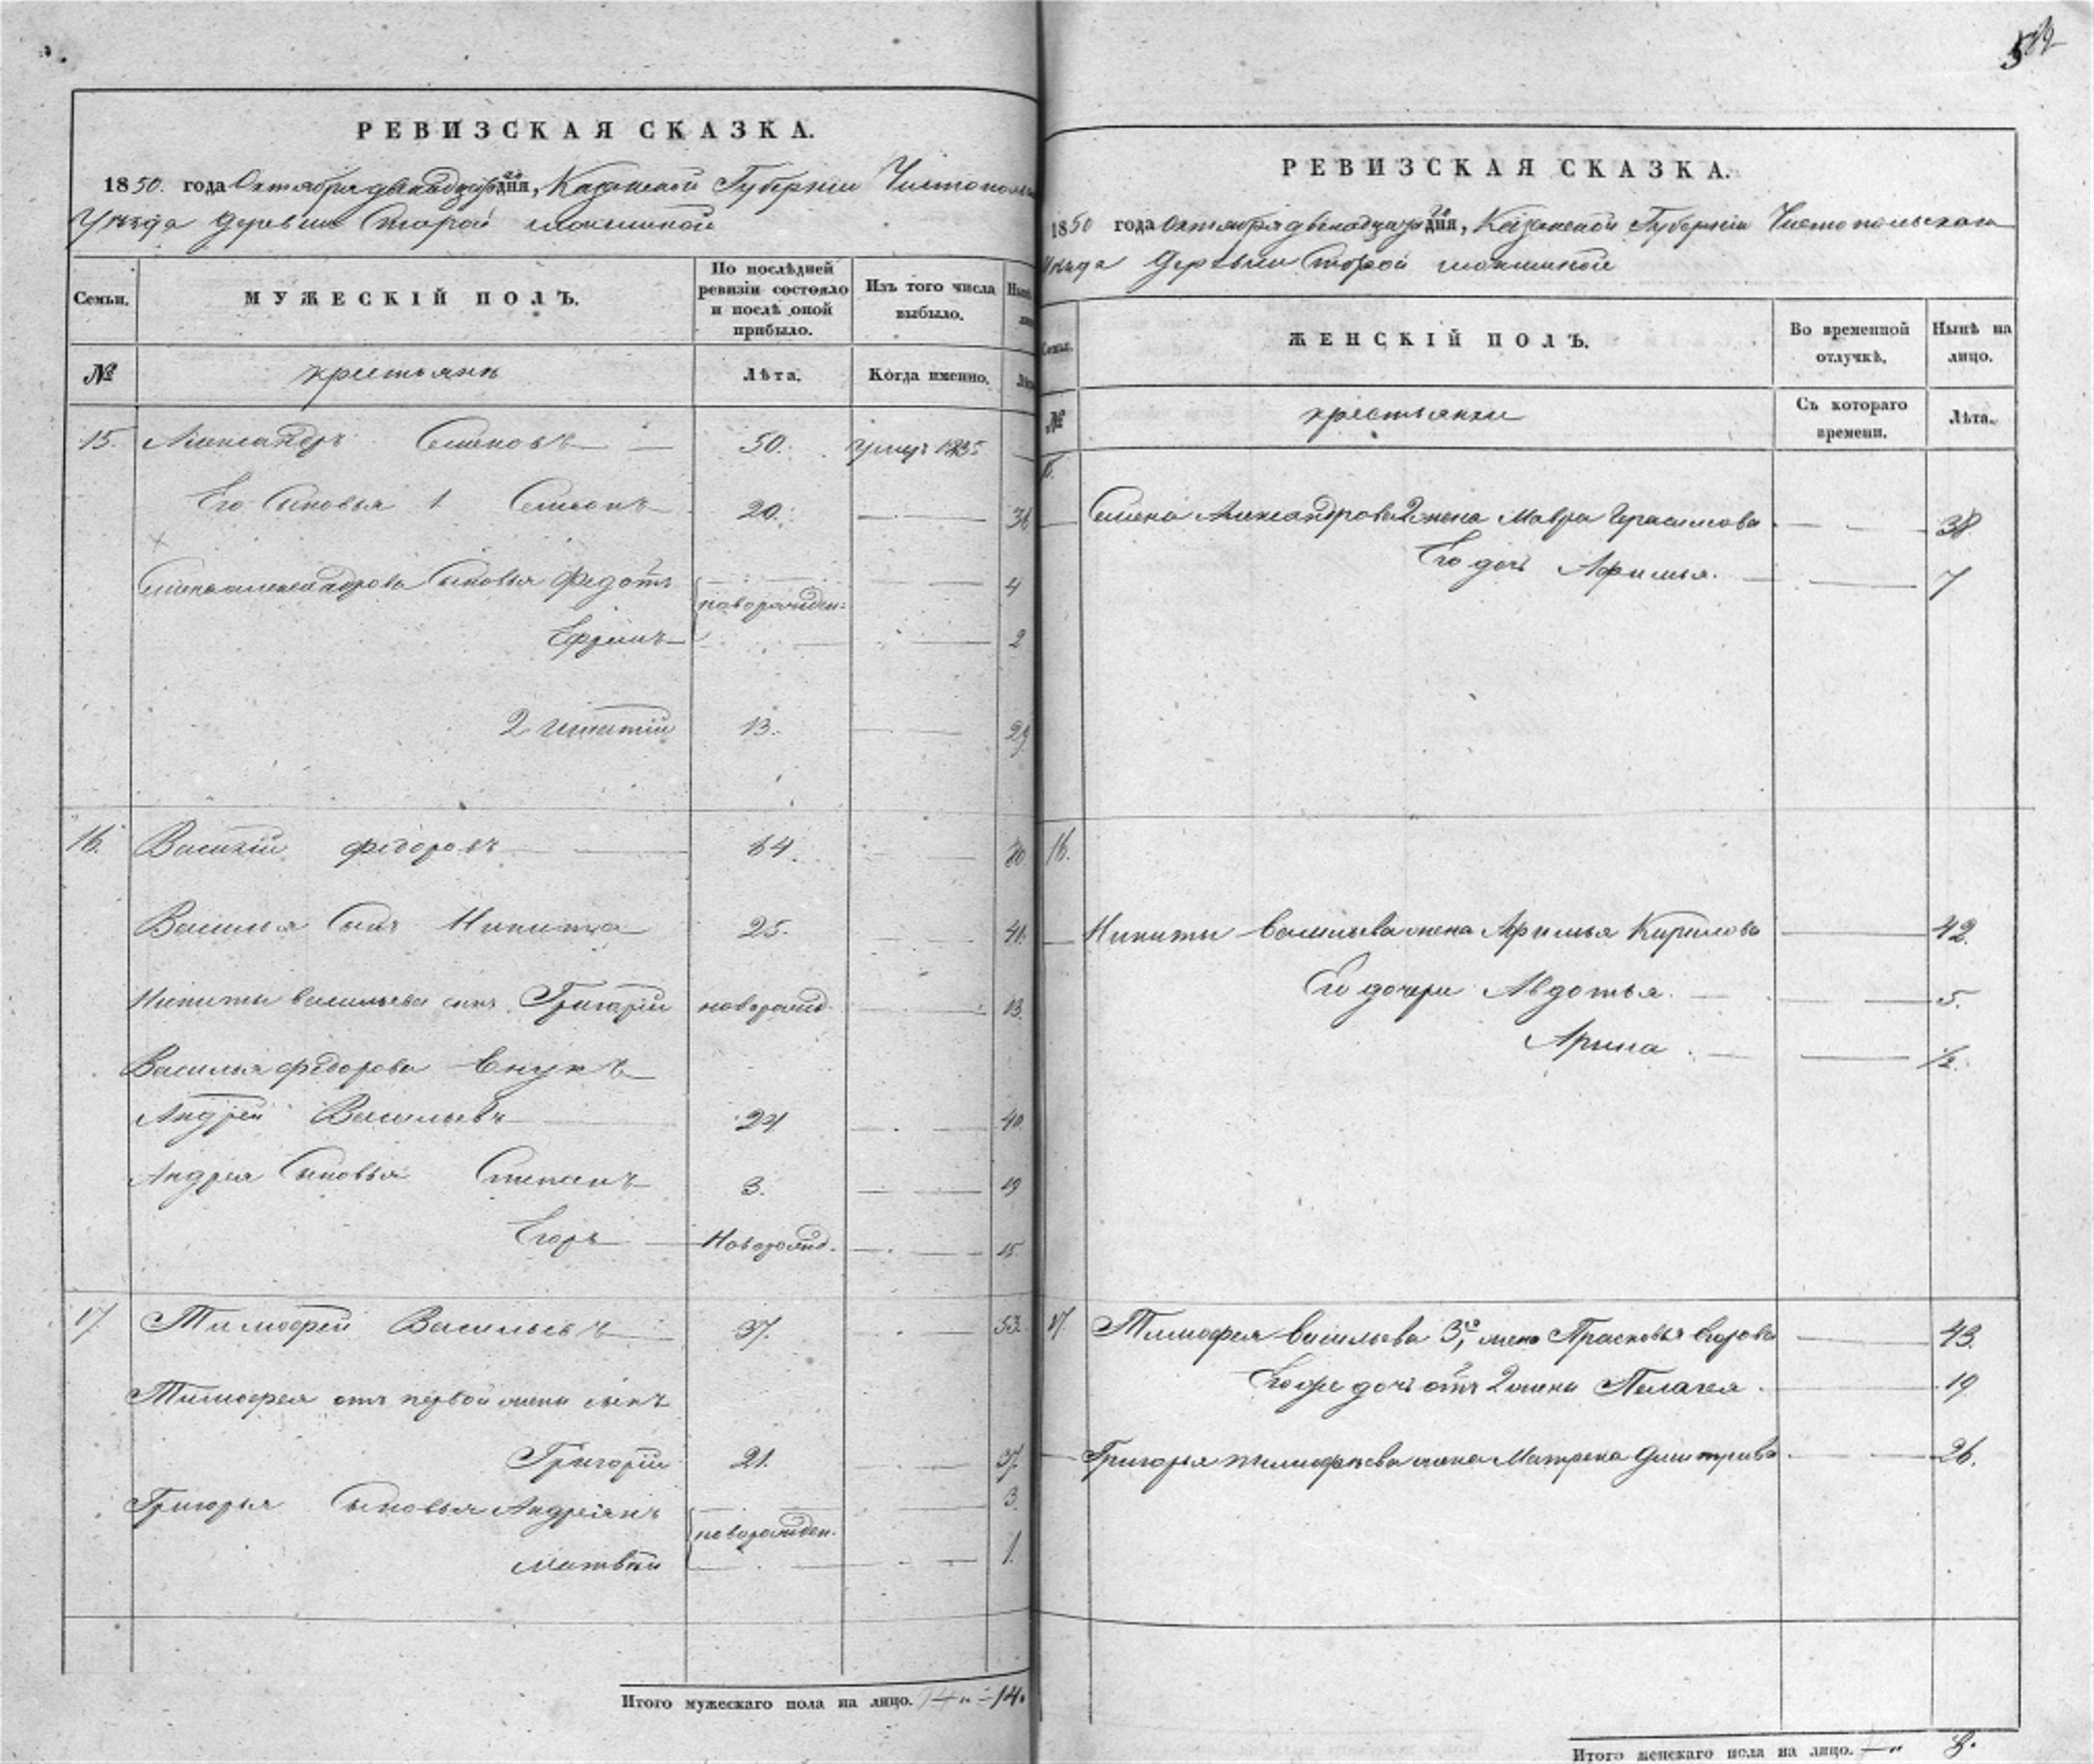 РЕВИЗСКАЯ СКАЗКА.
1850. года Октября двенадцат дня, Казанской Губернии Чистополь
Уезда деревни Старой
Семьи.
МУЖЕСКІЙ ПОЛЪ.
По послѣдней ревизіи состояло и послѣ оной прибыло.
Изъ того числа выбыло.
№
крестьяне
Лѣта.
Когда именно.
15. Александръ Семеновъ 50. умер 1835
Его сыновья 1 Семионъ 20. 36
Семена Александрова сыновья Федотъ новорожден: 4
Ефимъ 2
2 Игнатий 13. 29
16. Василий Федоровъ 64. 80
Василья сынъ Никита 25. 41.
Никиты Васильева сынъ Григорий новорожд. 13.
Василья Федорова внукъ
Андрей Васильевъ 24 40.
Андрея сыновья Степанъ 3. 19
Егоръ Новорожд. 15
17. Тимофей Васильевъ 37. 53.
Тимофея отъ первой жены сынъ
Григорій 21. 37.
Григорья сыновья Андреянъ новорожден. 3.
Матвѣй 1.
Итого мужескаго пола на лицо. 14
РЕВИЗСКАЯ СКАЗКА.
1850 года Октября двенадцат дня, Казанской Губернии Чистопольскаго
Уезда Деревни Старой
Семьи.
ЖЕНСКІЙ ПОЛЪ.
Во временной отлучкѣ.
Нынѣ на лицо.
№
крестьянки
Съ котораго времени.
Лѣта.
15.
Семена Александрова 2 жена Мавра Герасимова 38
Его дочь Афимья. 7
16.
Никиты Васильева жена Афимья Кирилова 42.
Его дочери Авдотья. 5.
Арина 1/2.
17. Тимофея Васильева 3я жена Прасковья Егорова 43.
Его же дочь отъ 2 жены Пелагея. 19
Григорья Тимофеева жена Матрена Дмитриева 26.
Итого женскаго пола на лицо. 8.